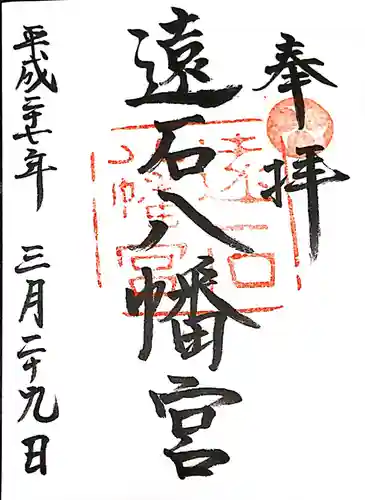 奉拝
遠石八幡宮
遠石八幡宮
平成二十七年 三月二十九日